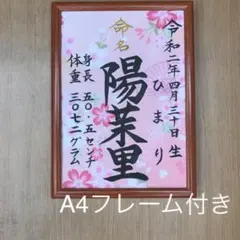 令和二年四月三十日生
ひまり
命名
陽茉里
身長 五〇.五センチ
体重 三〇七二グラム
A4フレーム付き